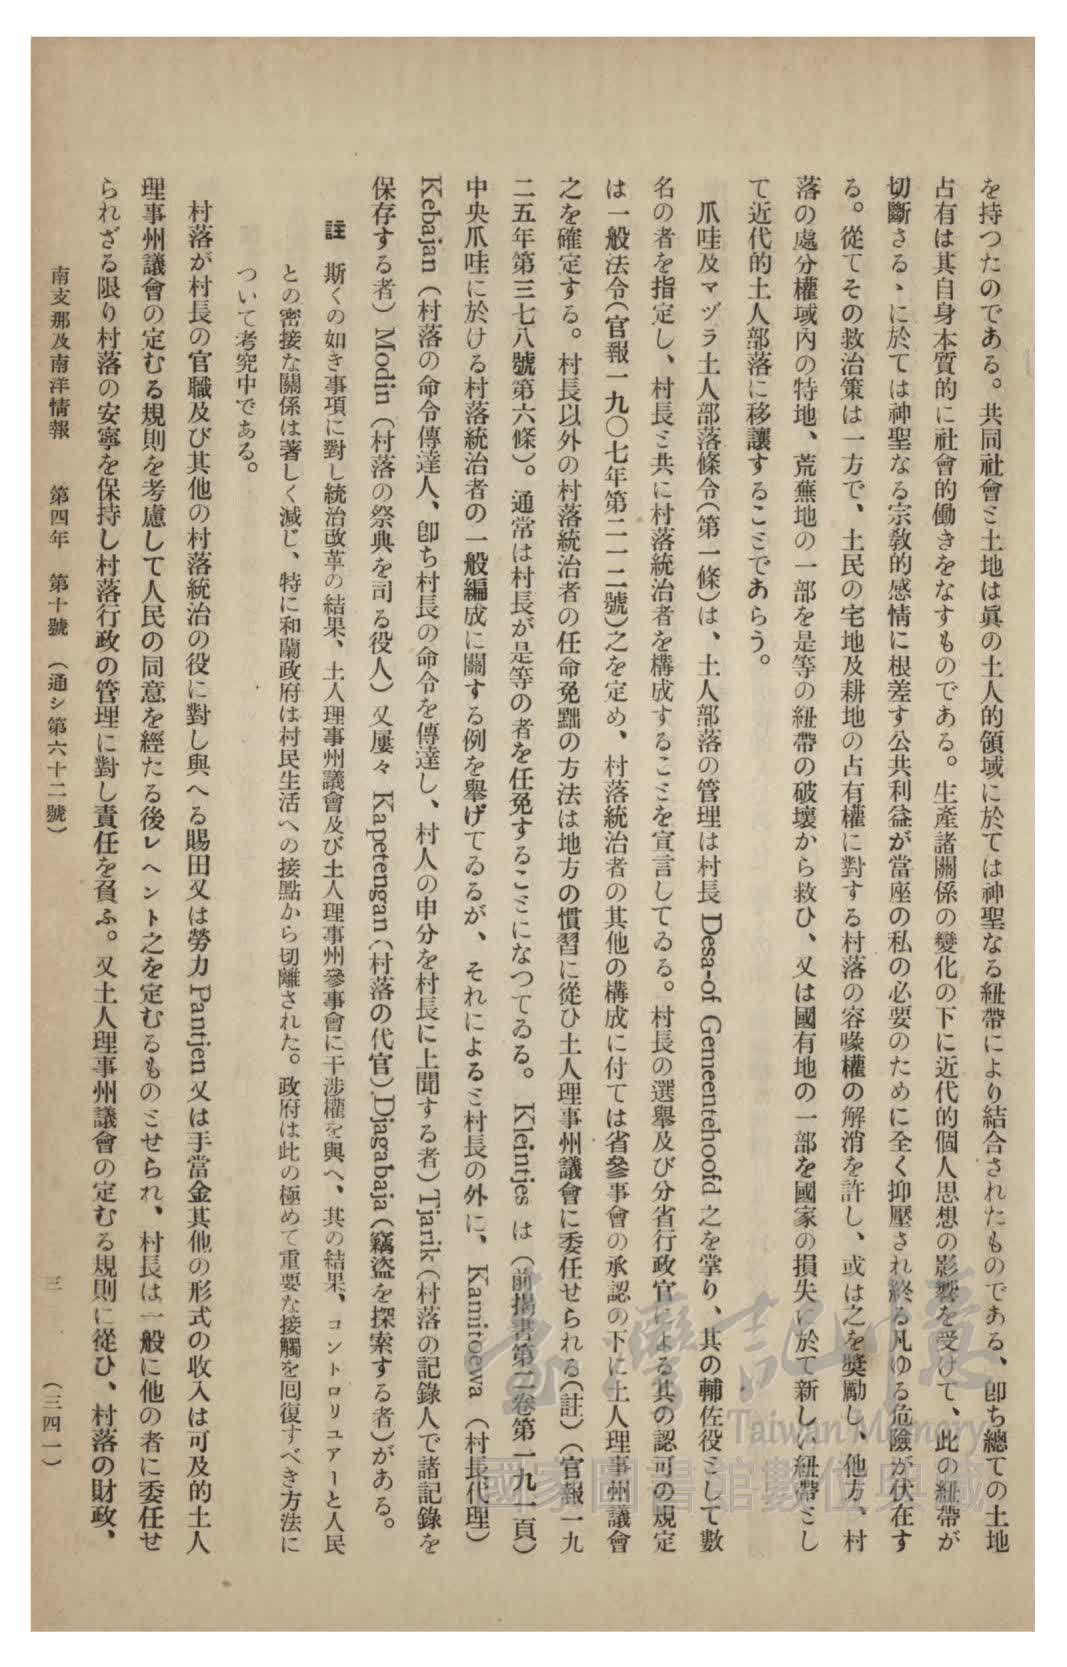 を持つたのである。共同社會ミ土地は眞の土人的領域に於ては神聖なる紐帶により結合されたものである、卽ち總ての土地
占有は其自身本質的に社會的働きをなすものである。生產諸關係の變化の下に近代的個人思想の影響を受けて、此の紐帶が
切斷さるゝに於ては神聖なる宗敎的感情に根差す公共利益が當座の私の必要のために全く抑壓され終る凡ゆる危險が伏在す
る。從てその救治策は一方で、土民の宅地及耕地の占有權に對する村落の容喙權の解消を許し、或は之を奬勵し、他方、村
落の處分權域內の特地、荒蕪地の一部を是等の紐帶の破壞から救ひ、又は國有地の一部を國家の損失に於て新しい紐帶ミし
て近代的土人部落に移讓するこミであらう。
爪哇及マヅラ土人部落條令(第一條)は、土人部落の管理は村長 Desa-of Gemeentehoofd 之を掌り、其の輔佐役ミして數
名の者を指定し、村長ミ共に村落統治者を構成するこミを宣言してゐる。村長の選擧及び分省行政官による其の認可の規定
は一般法令(官報一九〇七年第二一二號)之を定め、村落統治者の其他の構成に付ては省參事會の承認の下に土人理事州議會
之を確定する。村長以外の村落統治者の任命免黜の方法は地方の慣習に從ひ土人理事州議會に委任せられる(註)(官報一九
二五年第三七八號第六條)。通常は村長が是等の者を任免するこミになつてゐる。 Kleintjes は(前揭書第二卷第一九一頁)
中央爪哇に於ける村落統治者の一般編成に關する例を擧げてゐるが、それによるミ村長の外に、 Kamitoewa (村長代理)
Kebajan (村落の命令傳達人、卽ち村長の命令を傳達し、村人の申分を村長に上聞する者) Tjarik (村落の記錄人で諸記錄を
保存する者) Modin (村落の祭典を司る役人) 又屢々 Kapetengan (村落の代官) Djagabaja (竊盜を探索する者)がある。
註 斯くの如き事項に對し統治改革の結果、土人理事州議會及び土人理事州參事會に干涉權を與へ、其の結果、コントロリユアーと人民
との密接な關係は著しく減じ、特に和蘭政府は村民生活への接點から切離された。政府は此の極めて重要な接觸を囘復すべき方法に
ついて考究中である。
村落が村長の官職及び其他の村落統治の役に對し與へる賜田又は勞力 Pantjen 又は手當金其他の形式の收入は可及的土人
理事州議會の定むる規則を考慮して人民の同意を經たる後レヘント之を定むるものミせられ、村長は一般に他の者に委任せ
られざる限り村落の安寧を保持し村落行政の管理に對し責任を負ふ。又土人理事州議會の定むる規則に從ひ、村落の財政、
南支那及南洋情報 第四年 第十號 (通シ第六十二號) 三 (三四一)
臺灣記憶
Taiwan Memory
國家圖書館數位典藏